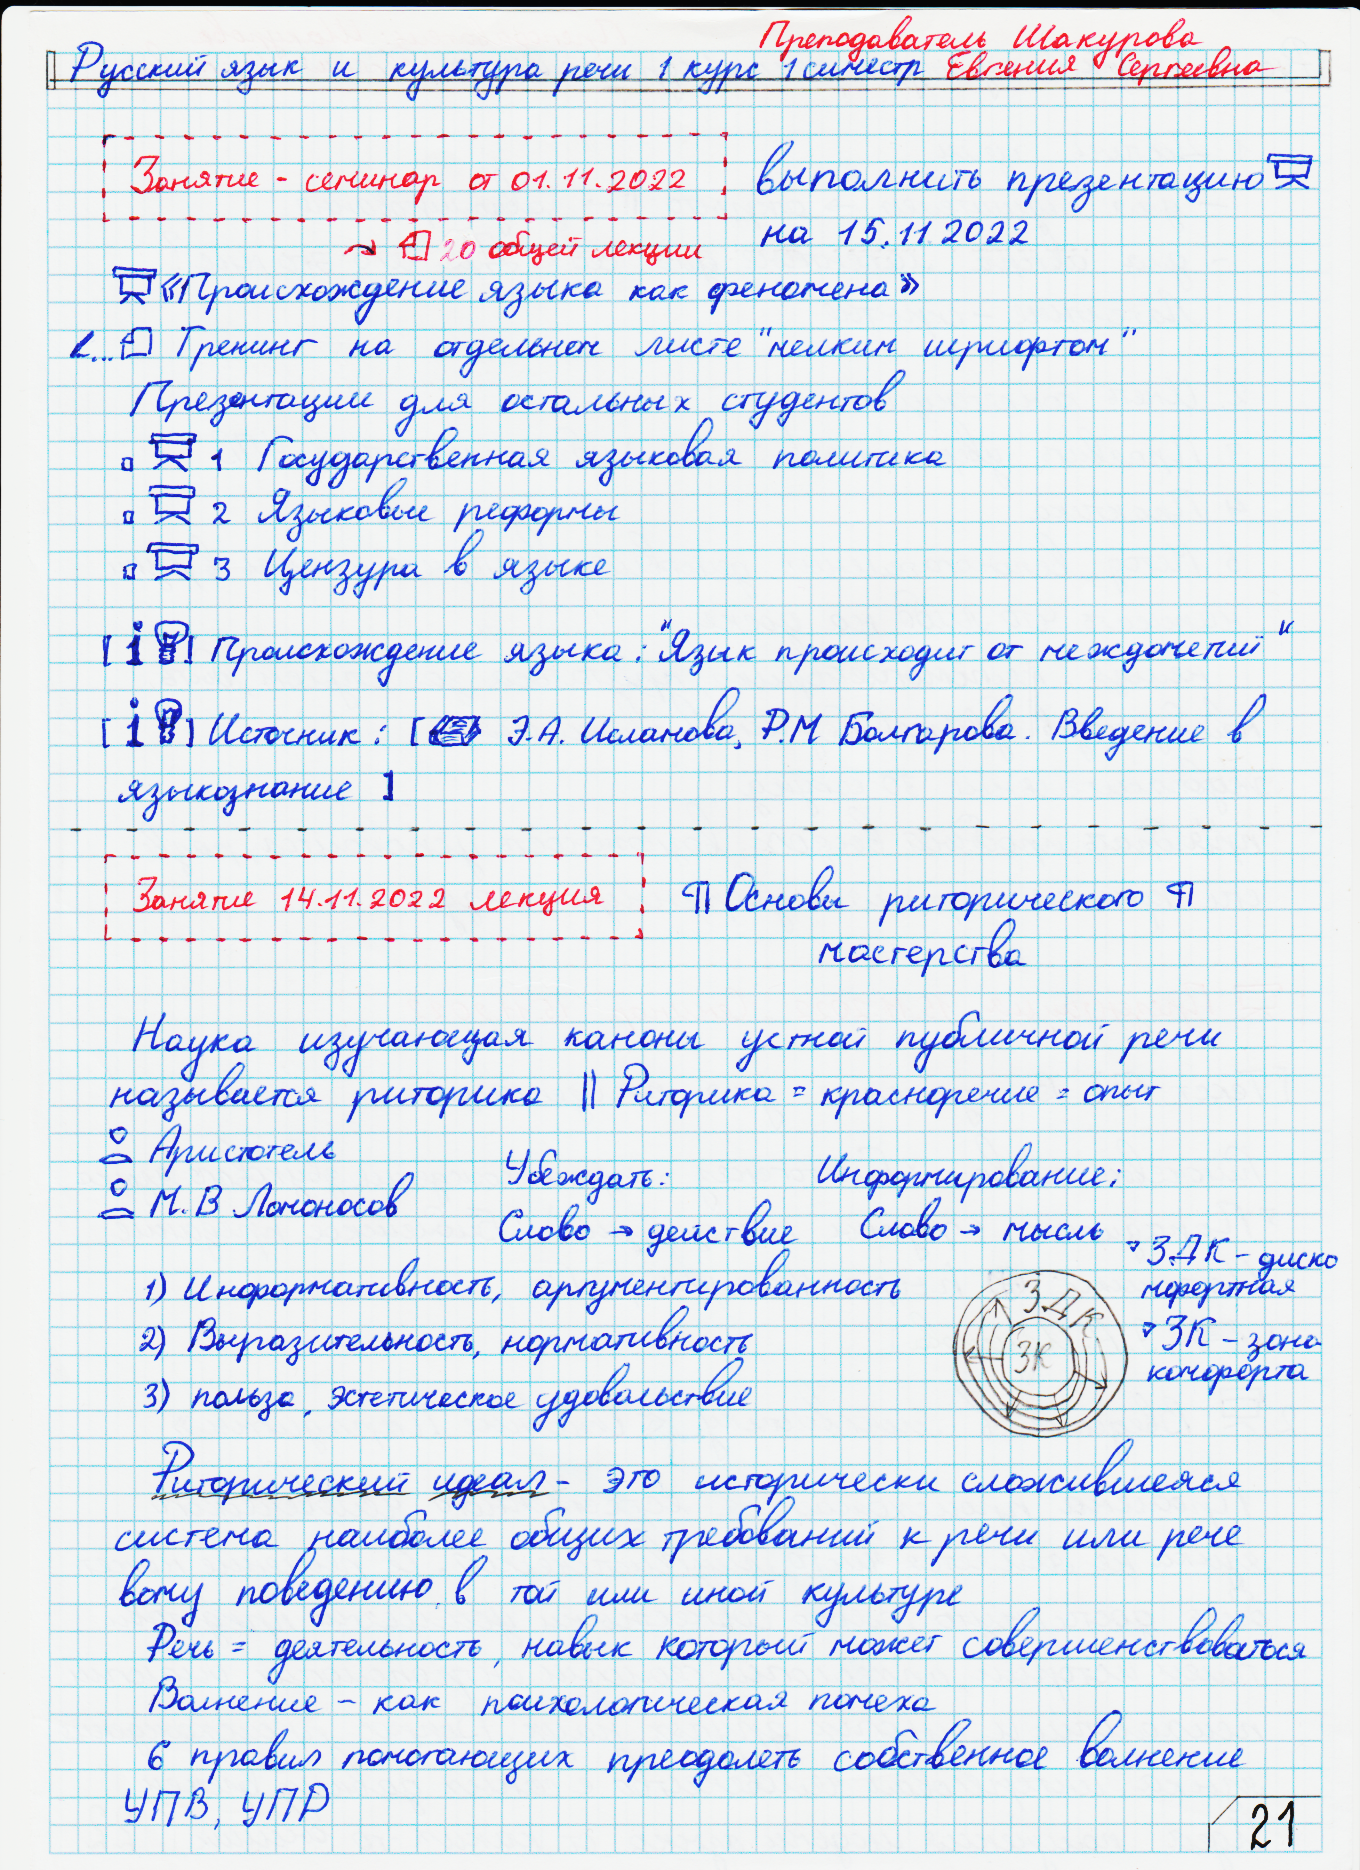 Преподаватель Шакурова
Русский язык и культура речи 1 курс 1 симестр Евгения Сергеевна
Занятие - семинар от 01.11.2022
выполнить презентацию
на 15.11.2022
20 общей лекции
«Происхождение языка как феномена»
Тренинг на отдельном листе "мелким шрифтом"
Презентации для остальных студентов
1 Государственная языковая политика
2 Языковые реформы
3 Цензура в языке
[i] Происхождение языка: "Язык происходит от междометий"
[i] Источник: [ Э.А. Исламова, Р.М Болгарова. Введение в
языкознание ]
Занятие 14.11.2022 лекция
¶ Основы риторического ¶
мастерства
Наука изучающая каноны устной публичной речи
называется риторика || Риторика = красноречие = опыт
Аристотель
Убеждать: Информирование:
М.В Ломоносов
Слово → действие Слово → мысль
ЗДК - диско
мфортная
1) Информативность, аргументированность
ЗДК
ЗК - зона
комфорта
2) Выразительность, нормативность
ЗК
3) польза, эстетическое удовольствие
Риторический идеал - это исторически сложившеяся
система наиболее общих требований к речи или рече
вому поведению в той или иной культуре
Речь = деятельность, навык который может совершенствоваться
Волнение - как психологическая помеха
6 правил помогающих преодолеть собственное волнение
УПВ, УПР
21